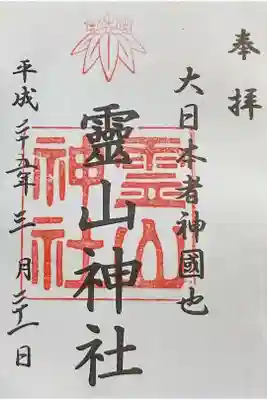 奉拝
大日本者神國也
靈山神社
霊山神社
平成二十五年三月二十一日